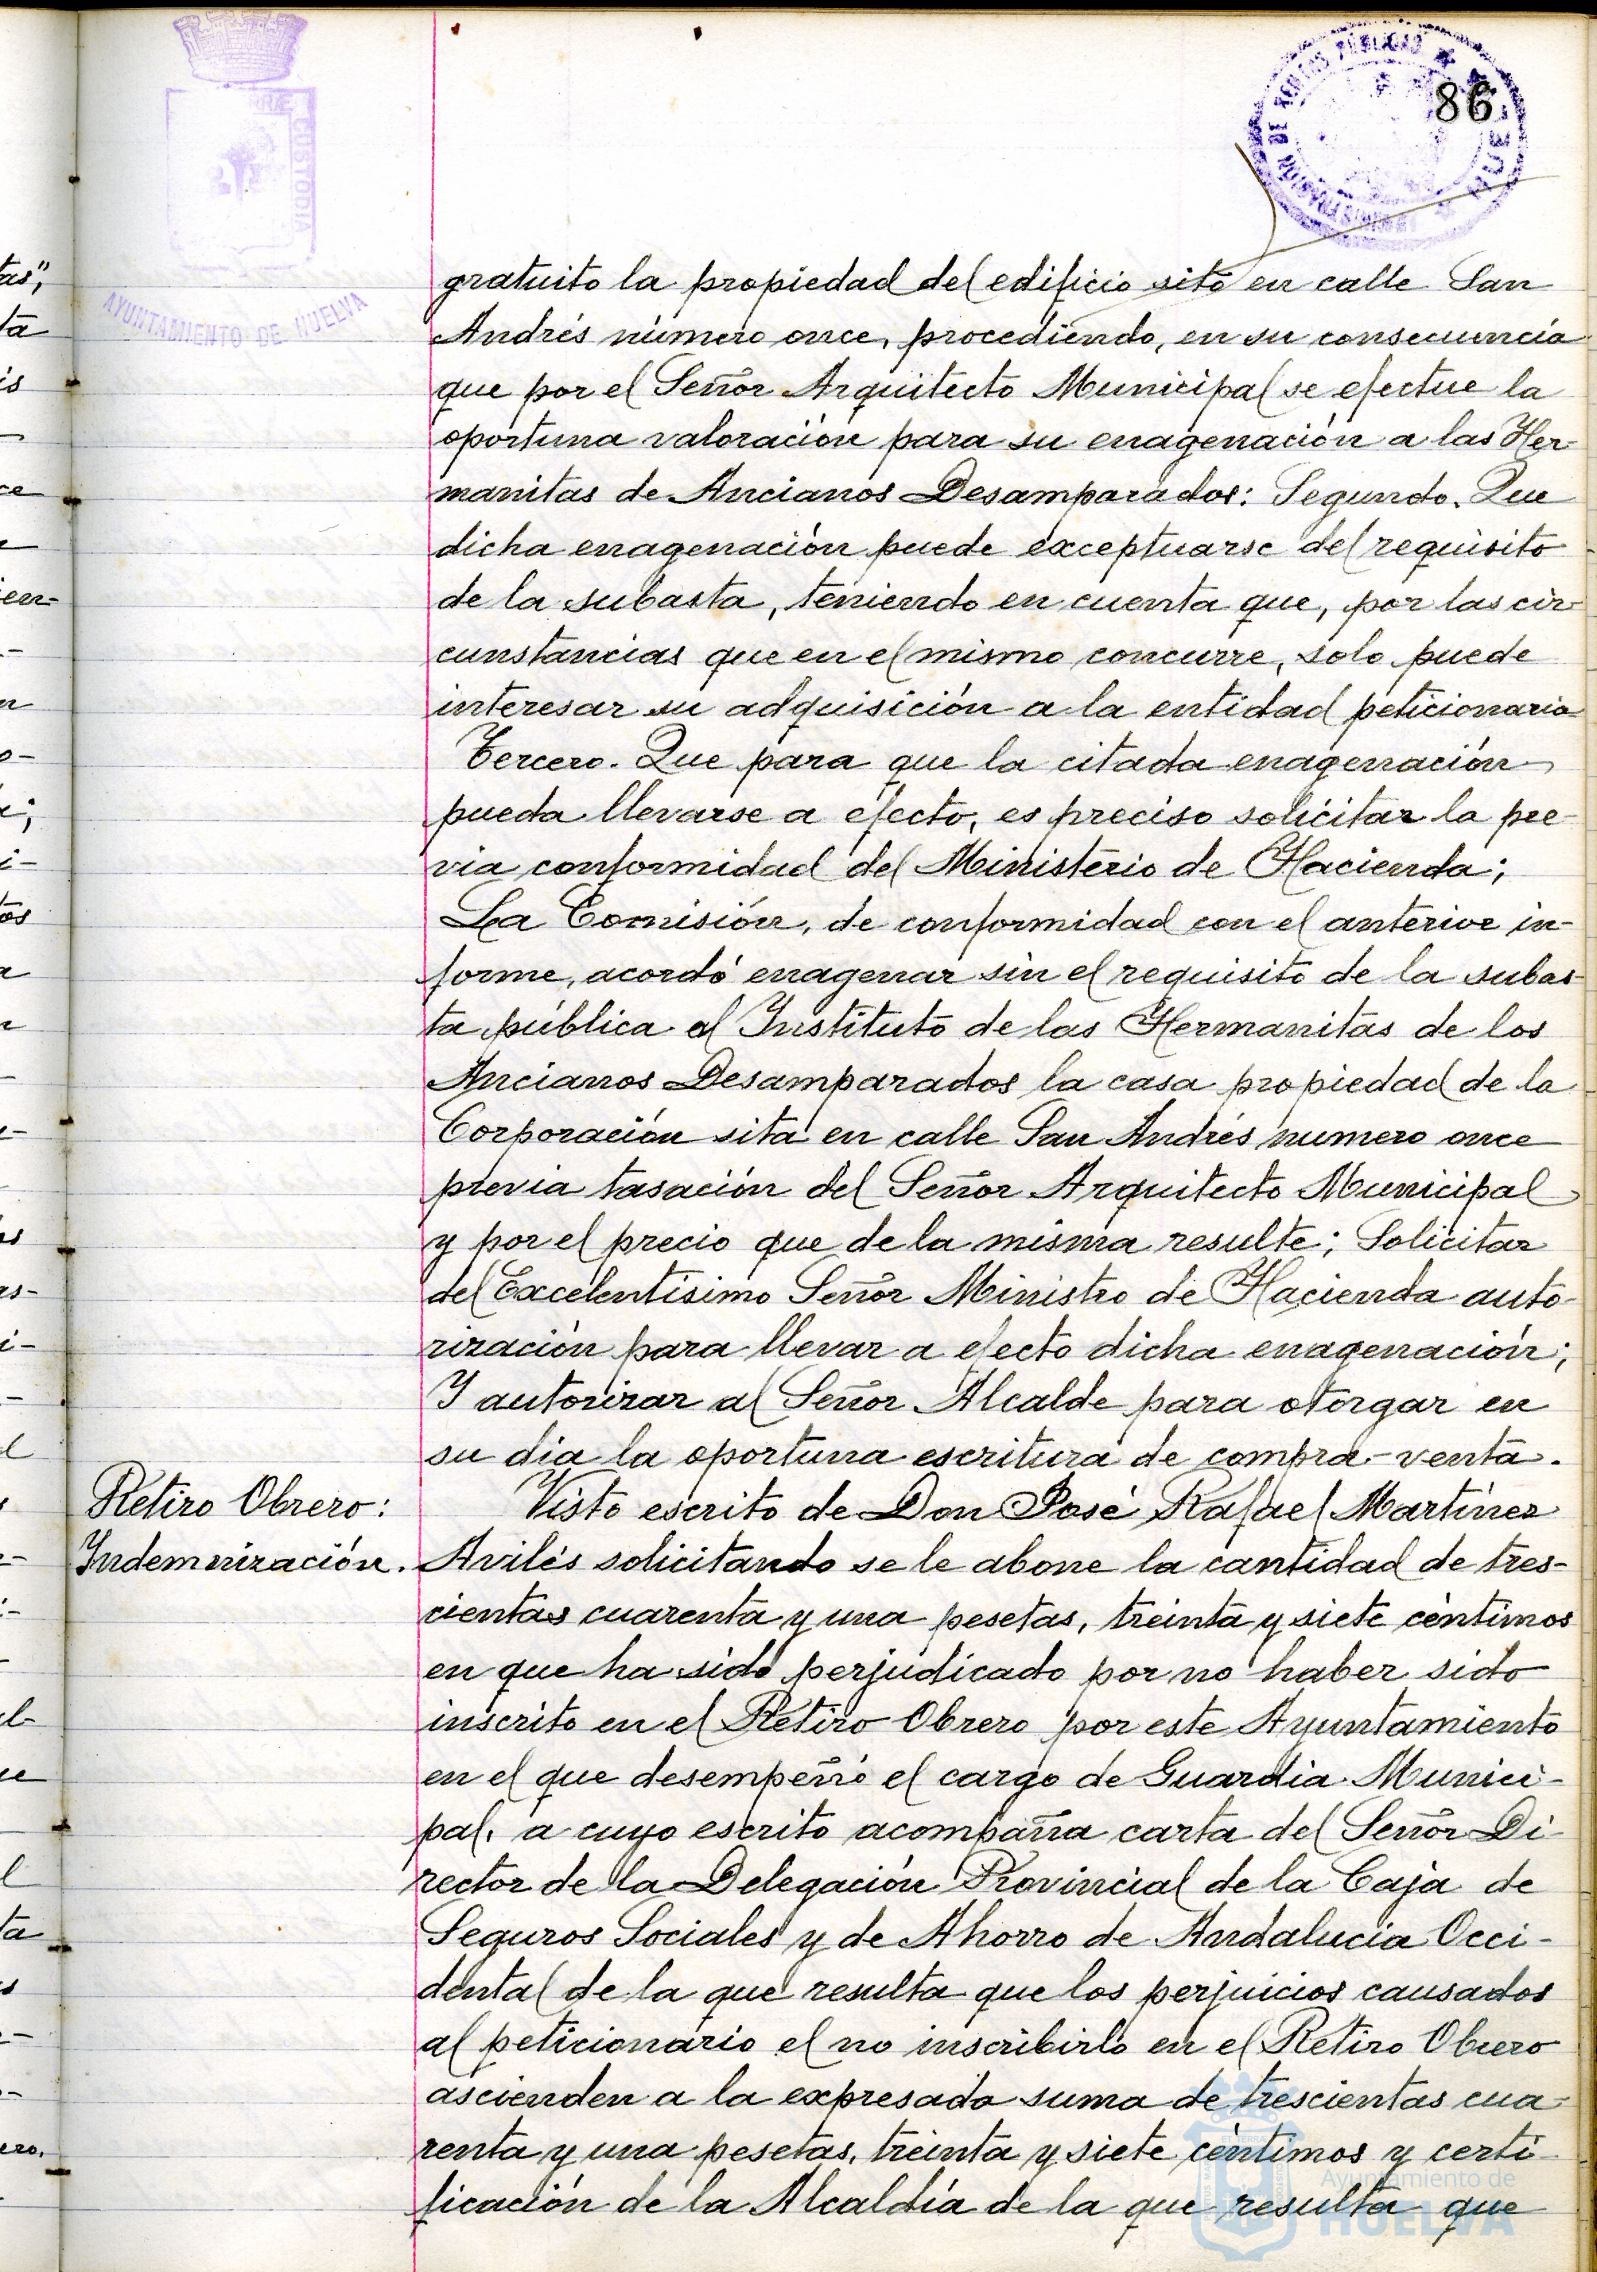 86
AYUNTAMIENTO DE HUELVA
gratuito la propiedad del edificio sito en calle San
Andrés número once, procediendo, en su consecuencia
que por el Señor Arquitecto Municipal se efectue la
oportuna valoración para su enagenación a las Her-
manitas de Ancianos Desamparados: Segundo. Que
dicha enagenación puede exceptuarse del requisito
de la subasta, teniendo en cuenta que, por las cir-
cunstancias que en el mismo concurre, solo puede
interesar su adquisición a la entidad peticionaria
Tercero. Que para que la citada enagenación
pueda llevarse a efecto, es preciso solicitar la pre-
via conformidad del Ministerio de Hacienda;
La Comisión, de conformidad con el anterior in-
forme, acordó enagenar sin el requisito de la subas-
ta pública al Instituto de las Hermanitas de los
Ancianos Desamparados la casa propiedad de la
Corporación sita en calle San Andrés numero once
previa tasación del Señor Arquitecto Municipal
y por el precio que de la misma resulte; Solicitar
del Excelentisimo Señor Ministro de Hacienda auto-
rización para llevar a efecto dicha enagenación;
Y autorizar al Señor Alcalde para otorgar en
su dia la oportuna escritura de compra-venta.
Retiro Obrero:
Indemnización.
Visto escrito de Don José Rafael Martínez
Avilés solicitando se le abone la cantidad de tres-
cientas cuarenta y una pesetas, treinta y siete céntimos
en que ha sido perjudicado por no haber sido
inscrito en el Retiro Obrero por este Ayuntamiento
en el que desempeñó el cargo de Guardia Munici-
pal, a cuyo escrito acompaña carta del Señor Di-
rector de la Delegación Provincial de la Caja de
Seguros Sociales y de Ahorro de Andalucia Occi-
dental de la que resulta que los perjuicios causados
al peticionario el no inscribirlo en el Retiro Obrero
ascienden a la expresada suma de trescientas cua-
renta y una pesetas, treinta y siete céntimos y certi-
ficación de la Alcaldía de la que resulta que
Ayuntamiento de
HUELVA